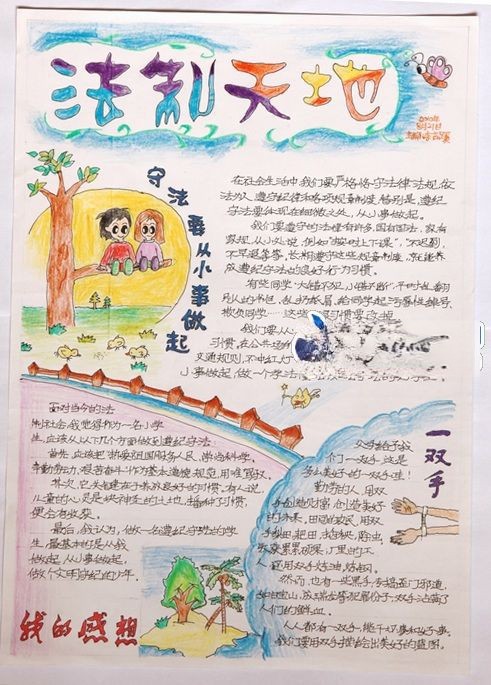 法制天地
守法要从小事做起
在社会生活中,我们要严格恪守法律法规,做
法的人,遵守纪律和各项规章制度,特别是遵纪
守法要体现在细微之处,从小事做起。
我们要遵守的法律有许多,国有国法,家有
家规,从小处说,例如"按时上下课",不迟到,
不早退等等。长期遵守这些规章制度,就能养
成遵纪守法的良好行为习惯。
有些同学"大错不犯,小错不断",平时乱翻
别人的书包,乱扔纸屑,给同学起污辱性绰号,
欺负同学……这些习惯要改掉。
我们要从
习惯,在公共场
交通规则,不冲红灯
小事做起,做一个学法
面对当今的法
制社会,我觉得作为一名小学
生,应该从以下几个方面做到遵纪守法:
首先,应该把"热爱祖国服务人民,崇尚科学,
辛勤劳动,艰苦奋斗"作为基本道德规范,用唯笃实,
其次,它关键在于养成良好的习惯,有人说,
儿童的心灵是块神圣的土地,播种了习惯,
便会有收获。
最后,我认为,做一名遵纪守法的学
生,最基本的是从我
做起,从小事做起,
做个文明守纪的少年。
我的感想
一双手
父母给予我
们一双手,这是
多么美好的一双手哇!
勤劳的人,用双
手创造财富,创造美好
的未来,田间的农民,用双
手播田,把田,换回
收获累累硕果,厂里的工
人,还用双手炼油,炼钢。
然而,也有一些黑手,专搞歪门邪道,
人们的鲜血。
人人都有一双手,能干坏事和好事。
我们要用双手描绘出美好的蓝图。